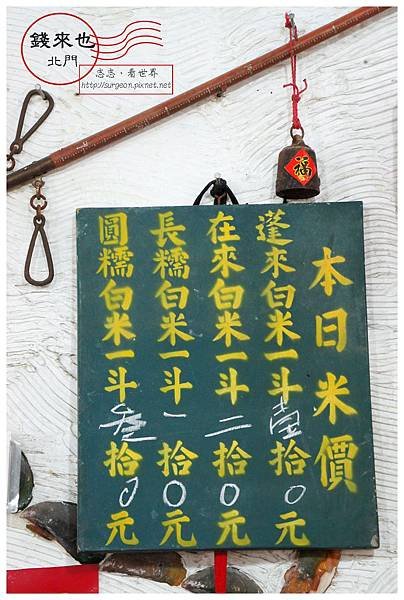 錢來也
北門
志志‧看世界
http://surgeon.pixnet.net
福
本日米價
蓬來白米一斗壹拾0元
在來白米一斗二拾0元
長糯白米一斗一拾0元
圓糯白米一斗叁拾0元